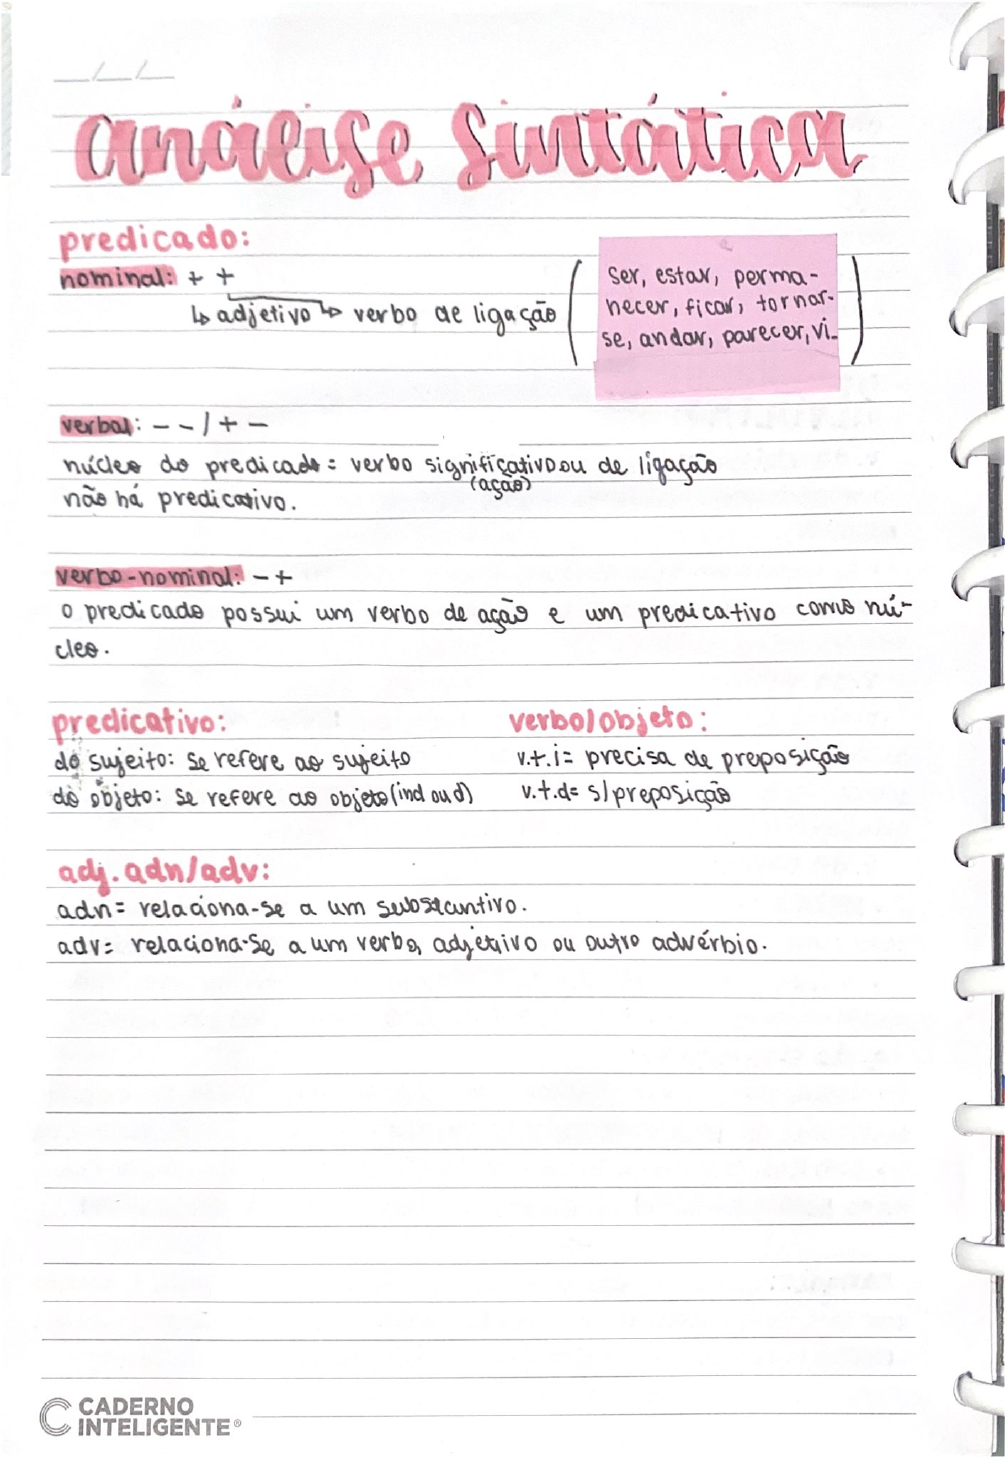 análise sintática
predicado:
nominal: + +
↳ adjetivo ↳ verbo de ligação
(ser, estar, perma-
necer, ficar, tornar-
se, andar, parecer, vi-)
verbal: - - / + -
núcleo do predicado = verbo significativo ou de ligação
(ação)
não há predicativo.
verbo-nominal: - +
o predicado possui um verbo de ação e um predicativo como nú-
cleo.
predicativo:
do sujeito: se refere ao sujeito
do objeto: se refere ao objeto (ind ou d)
verbo/objeto:
v.t.i = precisa de preposição
v.t.d = s/preposição
adj. adn/adv:
adn = relaciona-se a um substantivo.
adv = relaciona-se a um verbo, adjetivo ou outro advérbio.
CADERNO
INTELIGENTE®